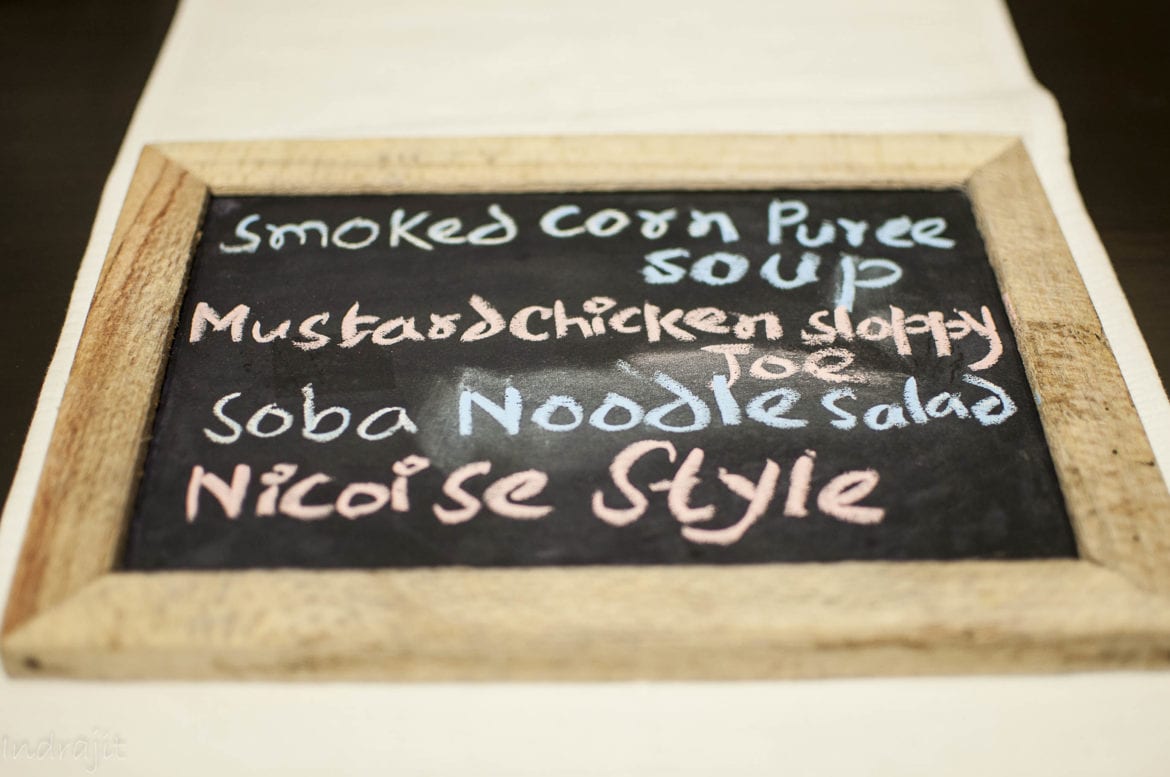 Smoked Corn Puree
Soup
Mustard Chicken sloppy
Joe
Soba Noodle Salad
Nicoise Style
Indrajit